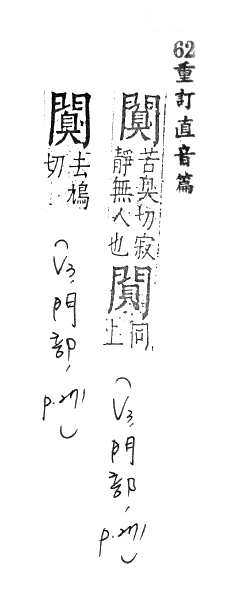 62重訂直音篇
闃苦臭切寂靜無人也同上(V3,門部,p.271)
闃去切(V3,門部,p.271)